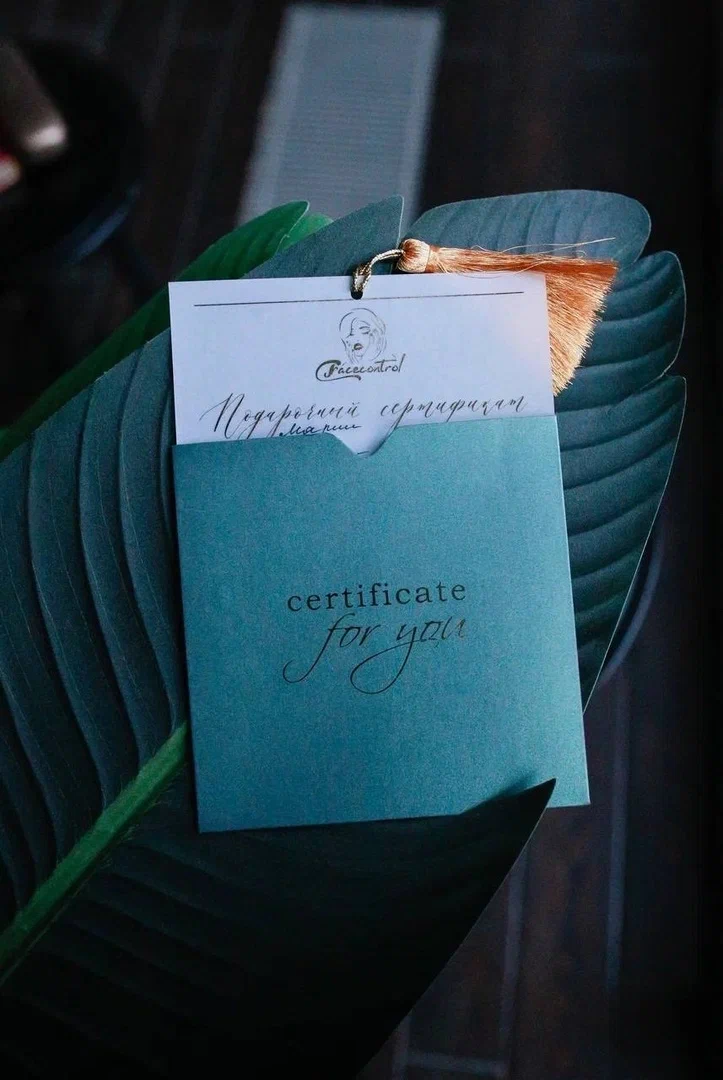 Facecontrol
Подарочный сертификат
Марии
certificate
for you